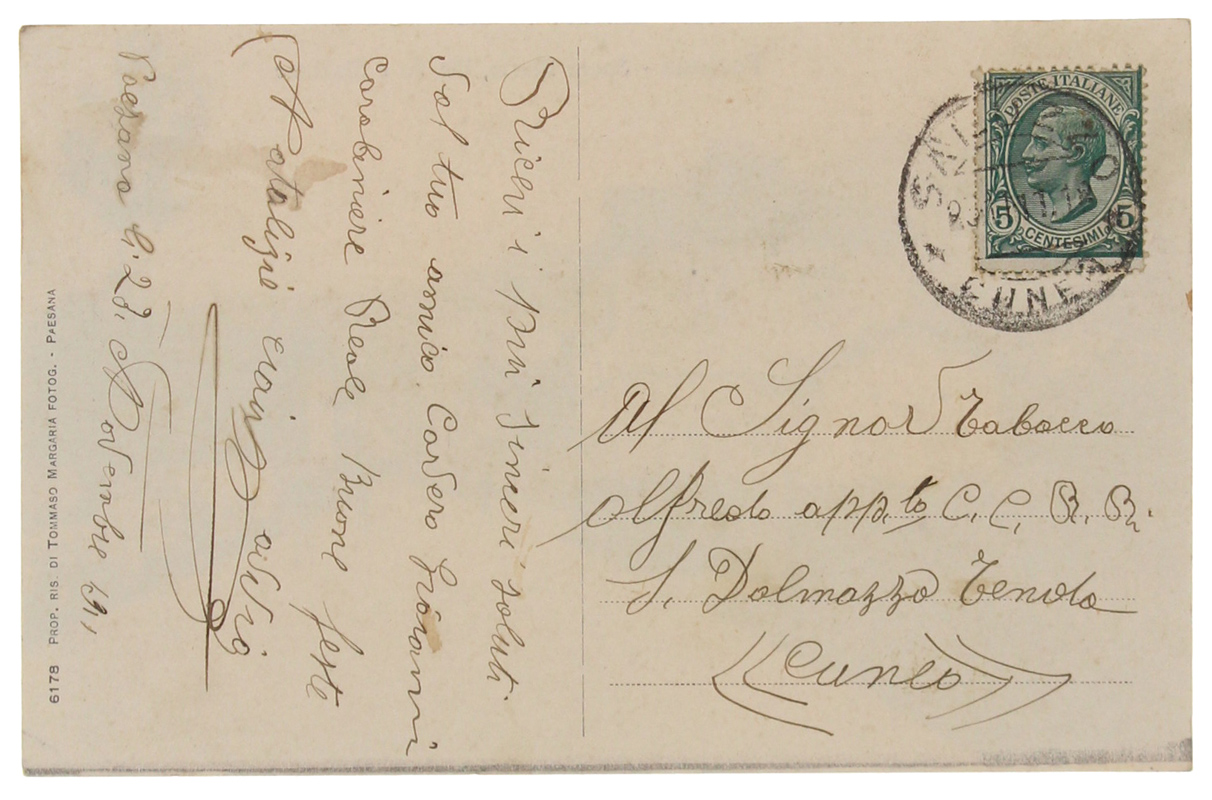 Ricevi i più sinceri saluti
dal tuo amico Cavero Giovanni
Carabiniere Reale Buone feste
Natalizie
Paesana li 23. Novembre 191
6178 PROP. RIS. DI TOMMASO MARGARIA FOTOG. - PAESANA
POSTE ITALIANE
5 5
CENTESIMI
CUNEO
Al Signor Tabacco
Alfredo app.to C. C. R. R.
S. Dalmazzo Tenda
(Cuneo)